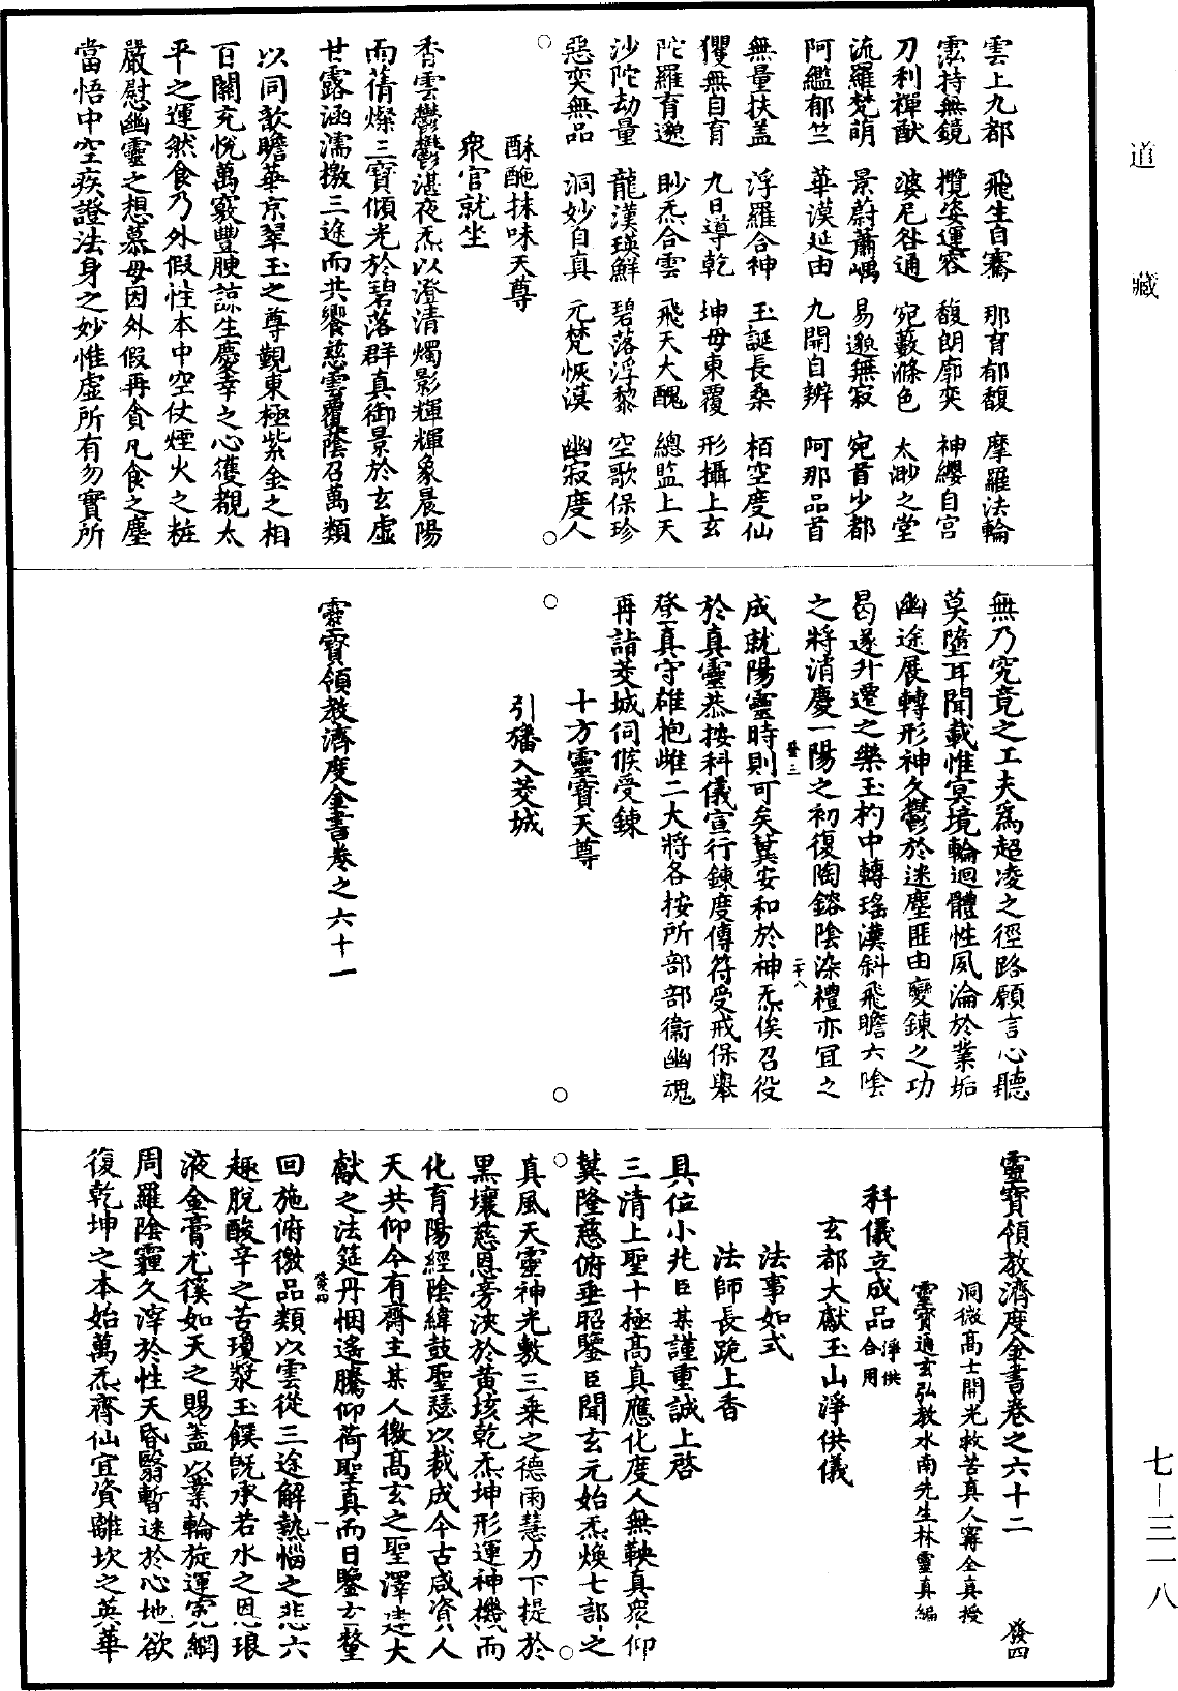 雲上九都　飛生自騫　那育郁馥　摩羅法輪
霐持無鏡　攬姿運容　馥朗廓奕　神纓自宫
刀利禪猷　婆尼咎通　宛藪滌色　太渺之堂
流羅梵萌　景蔚蕭嵎　易邈無寂　宛首少都
阿䌫郁竺　華漠延由　九開自辨　阿那品首
無量扶蓋　浮羅合神　玉誕長桑　栢空度仙
玃無自育　九日導乾　坤毋東覆　形攝上玄
陀羅育邈　眇炁合雲　飛天大醜　總監上天
沙陀劫量　龍漢瑛鮮　碧落浮黎　空歌保珍
惡奕無品　洞妙自真　元梵恢漠　幽寂度人
酥酏抹味天尊
衆官就坐
香雲鬱鬱湛夜炁以澄清燭影輝輝象晨陽
而蒨燦三寶傾光於碧落群真御景於玄虛
甘露涵濡撽三途而共饗慈雲覆蔭召萬類
以同歆瞻華京翠玉之尊覲東極紫金之相
百關充悅萬竅豐腴諒生慶幸之心獲覩太
平之運然食乃外假性本中空仗煙火之粧
嚴慰幽靈之想慕毋因外假再貪凡食之塵
當悟中空疾證法身之妙惟虛所有勿實所
無乃究竟之工夫爲超凌之徑路願言心聽
莫墮耳聞載惟冥境輪迴體性夙淪於業垢
幽途展轉形神久鬱於迷塵匪由變鍊之功
曷遂升遷之樂玉杓中轉瑤漢斜飛瞻六陰
之將消慶一陽之初復陶鎔陰染禮亦宜之
發三
二十八
成就陽靈時則可矣冀安和於神炁俟召役
於真靈恭按科儀宣行鍊度傳符受戒保舉
登真守雄抱雌二大將各按所部部衞幽魂
再詣茭城伺候受鍊
十方靈寶天尊
引旛入茭城
靈寶領教濟度金書卷之六十一
靈寶領教濟度金書卷之六十二　發四
洞微高士開光救苦真人甯全真授
靈寶通玄弘教水南先生林靈真編
科儀立成品淨供合用
玄都大獻玉山淨供儀
法事如式
法師長跪上香
具位小兆臣某謹重誠上啓
三清上聖十極高真應化度人無鞅真衆仰
冀隆慈俯垂昭鑒臣聞玄元始炁煥七部之
真風天靈神光敷三乗之德雨慧力下提於
黑壤慈恩旁浹於黄垓乾炁坤形運神機而
化育陽經陰緯鼓聖瑟以裁成今古咸資人
天共仰今有齋主某人徼高玄之聖澤建大
獻之法筵丹悃遙騰仰荷聖真而日鑒玄鼇
發四
一
回施俯徼品類以雲從三途解熱惱之悲六
趣脫酸辛之苦瓊漿玉饌旣承若水之恩琅
液金膏尤篌如天之賜蓋以業輪旋運宻網
周羅陰霾久滓於性天昏翳暫迷於心地欲
復乾坤之本始萬炁齊仙宜資離坎之英華
道藏
七－三一八